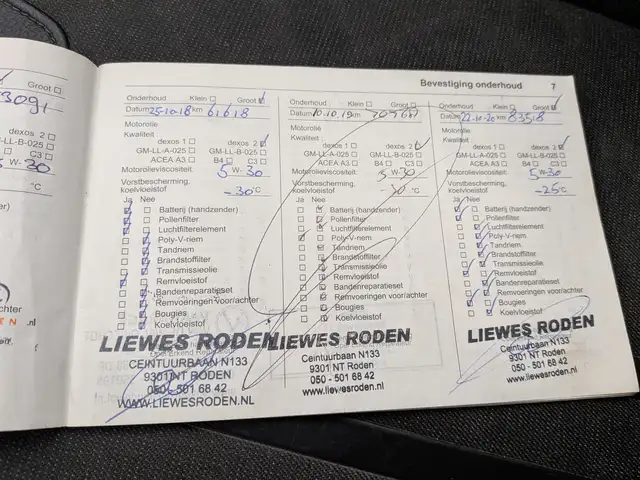 Bevestiging onderhoud 7
Groot
dexos 2
GM-LL-B-025
C3
W-30
°C
.nl
Onderhoud Klein Groot
Datum 25-10-18 km 61618
Motorolie
Kwaliteit
dexos 1 dexos 2
GM-LL-A-025 GM-LL-B-025
ACEA A3 B4 C3
Motorolieviscositeit. 5 W-30
Vorstbescherming,
koelvloeistof -30 °C
Ja Nee
Batterij (handzender)
Pollenfilter
Luchtfilterelement
Poly-V-riem
Tandriem
Brandstoffilter
Transmissieolie
Remvloeistof
Bandenreparatieset
Remvoeringen voor/achter
Bougies
Koelvloeistof
LIEWES RODEN
CEINTUURBAAN N133
9301 NT RODEN
050 - 501 68 42
WWW.LIEWESRODEN.NL
Onderhoud Klein Groot
Datum 10-10-19 km
Motorolie
Kwaliteit
dexos 1 dexos 2
GM-LL-A-025 GM-LL-B-025
ACEA A3 B4 C3
Motorolieviscositeit: 5 W-30
Vorstbescherming,
koelvloeistof °C
Ja Nee
Batterij (handzender)
Pollenfilter
Luchtfilterelement
Poly-V-riem
Tandriem
Brandstoffilter
Transmissieolie
Remvloeistof
Bandenreparatieset
Remvoeringen voor/achter
Bougies
Koelvloeistof
LIEWES RODEN
Ceintuurbaan N133
9301 NT Roden
050 - 501 68 42
www.liewesroden.nl
Onderhoud Klein Groot
Datum 22-10-20 km 83518
Motorolie
Kwaliteit
dexos 1 dexos 2
GM-LL-A-025 GM-LL-B-025
ACEA A3 B4 C3
Motorolieviscositeit: 5 W-30
Vorstbescherming,
koelvloeistof -25 °C
Ja Nee
Batterij (handzender)
Pollenfilter
Luchtfilterelement
Poly-V-riem
Tandriem
Brandstoffilter
Transmissieolie
Remvloeistof
Bandenreparatieset
Remvoeringen voor/achter
Bougies
Koelvloeistof
LIEWES RODEN
Ceintuurbaan N133
9301 NT Roden
050 - 501 68 42
www.liewesroden.nl